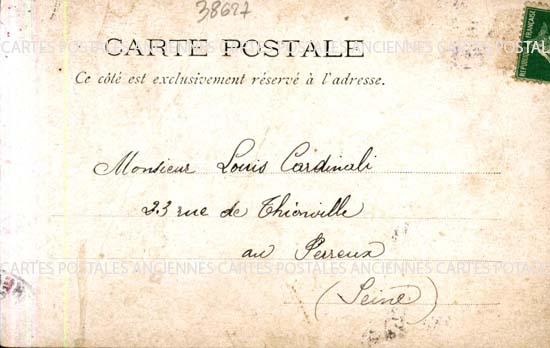 38627
CARTE POSTALE
Ce côté est exclusivement réservé à l'adresse.
CARTES POSTALES ANCIENNES CARTES POSTALES ANCIENNES CARTES POSTALES
Monsieur Louis Cardinali
23 rue de Thionville
au Perreux
CARTES POSTALES ANCIENNES CARTES POSTALES ANCIENNES CARTES POTALES
(Seine)